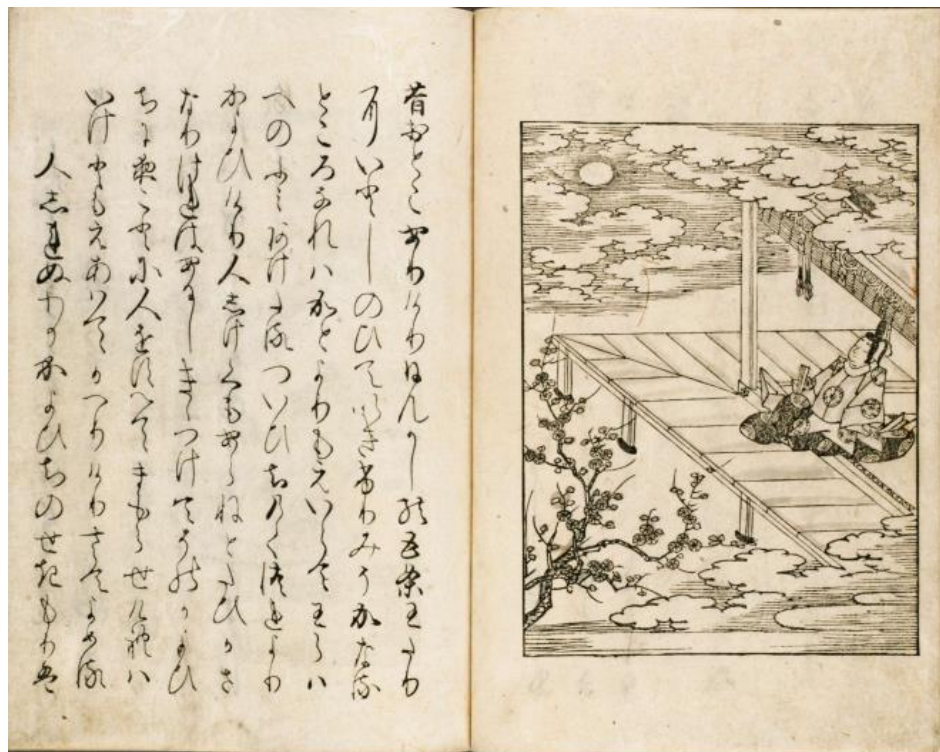 昔おとこありけりひんかしの五条わたり
にいとしのひていきけりみそかなる
ところなれはかとよりもえいらてわらは
へのふみあけたるついひちのくつれより
かよひけり人しけくもあらねとたひかさ
なりけれはあるしきゝつけてそのかよひ
ちに夜ことに人をすへてまもらせけれは
いけともえあはてかへりけりさてよめる
人しれぬわかかよひちのせきもりは